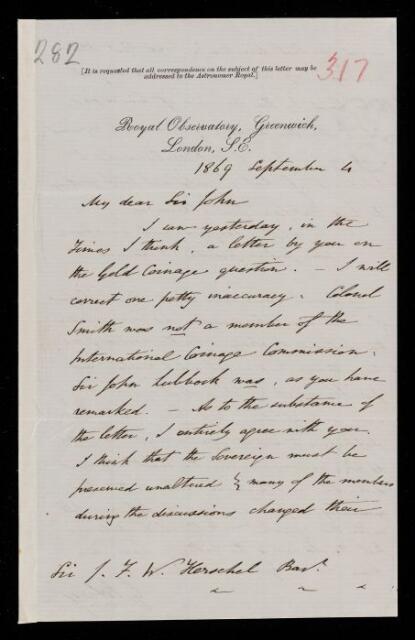 282
[It is requested that all correspondence on the subject of this letter may be
addressed to the Astronomer Royal.]
317
Royal Observatory, Greenwich,
London, S.E.
1869 September 4
My dear Sir John
I saw yesterday, in the
Times I think, a letter by you on
the Gold Coinage question. — I will
correct one petty inaccuracy. Colonel
Smith was not a member of the
International Coinage Commission.
Sir John Lubbock was, as you have
remarked. — As to the substance of
the letter, I entirely agree with you.
I think that the Sovereign must be
preserved unaltered & many of the members
during the discussions changed their
Sir J. F. W. Herschel Bart.